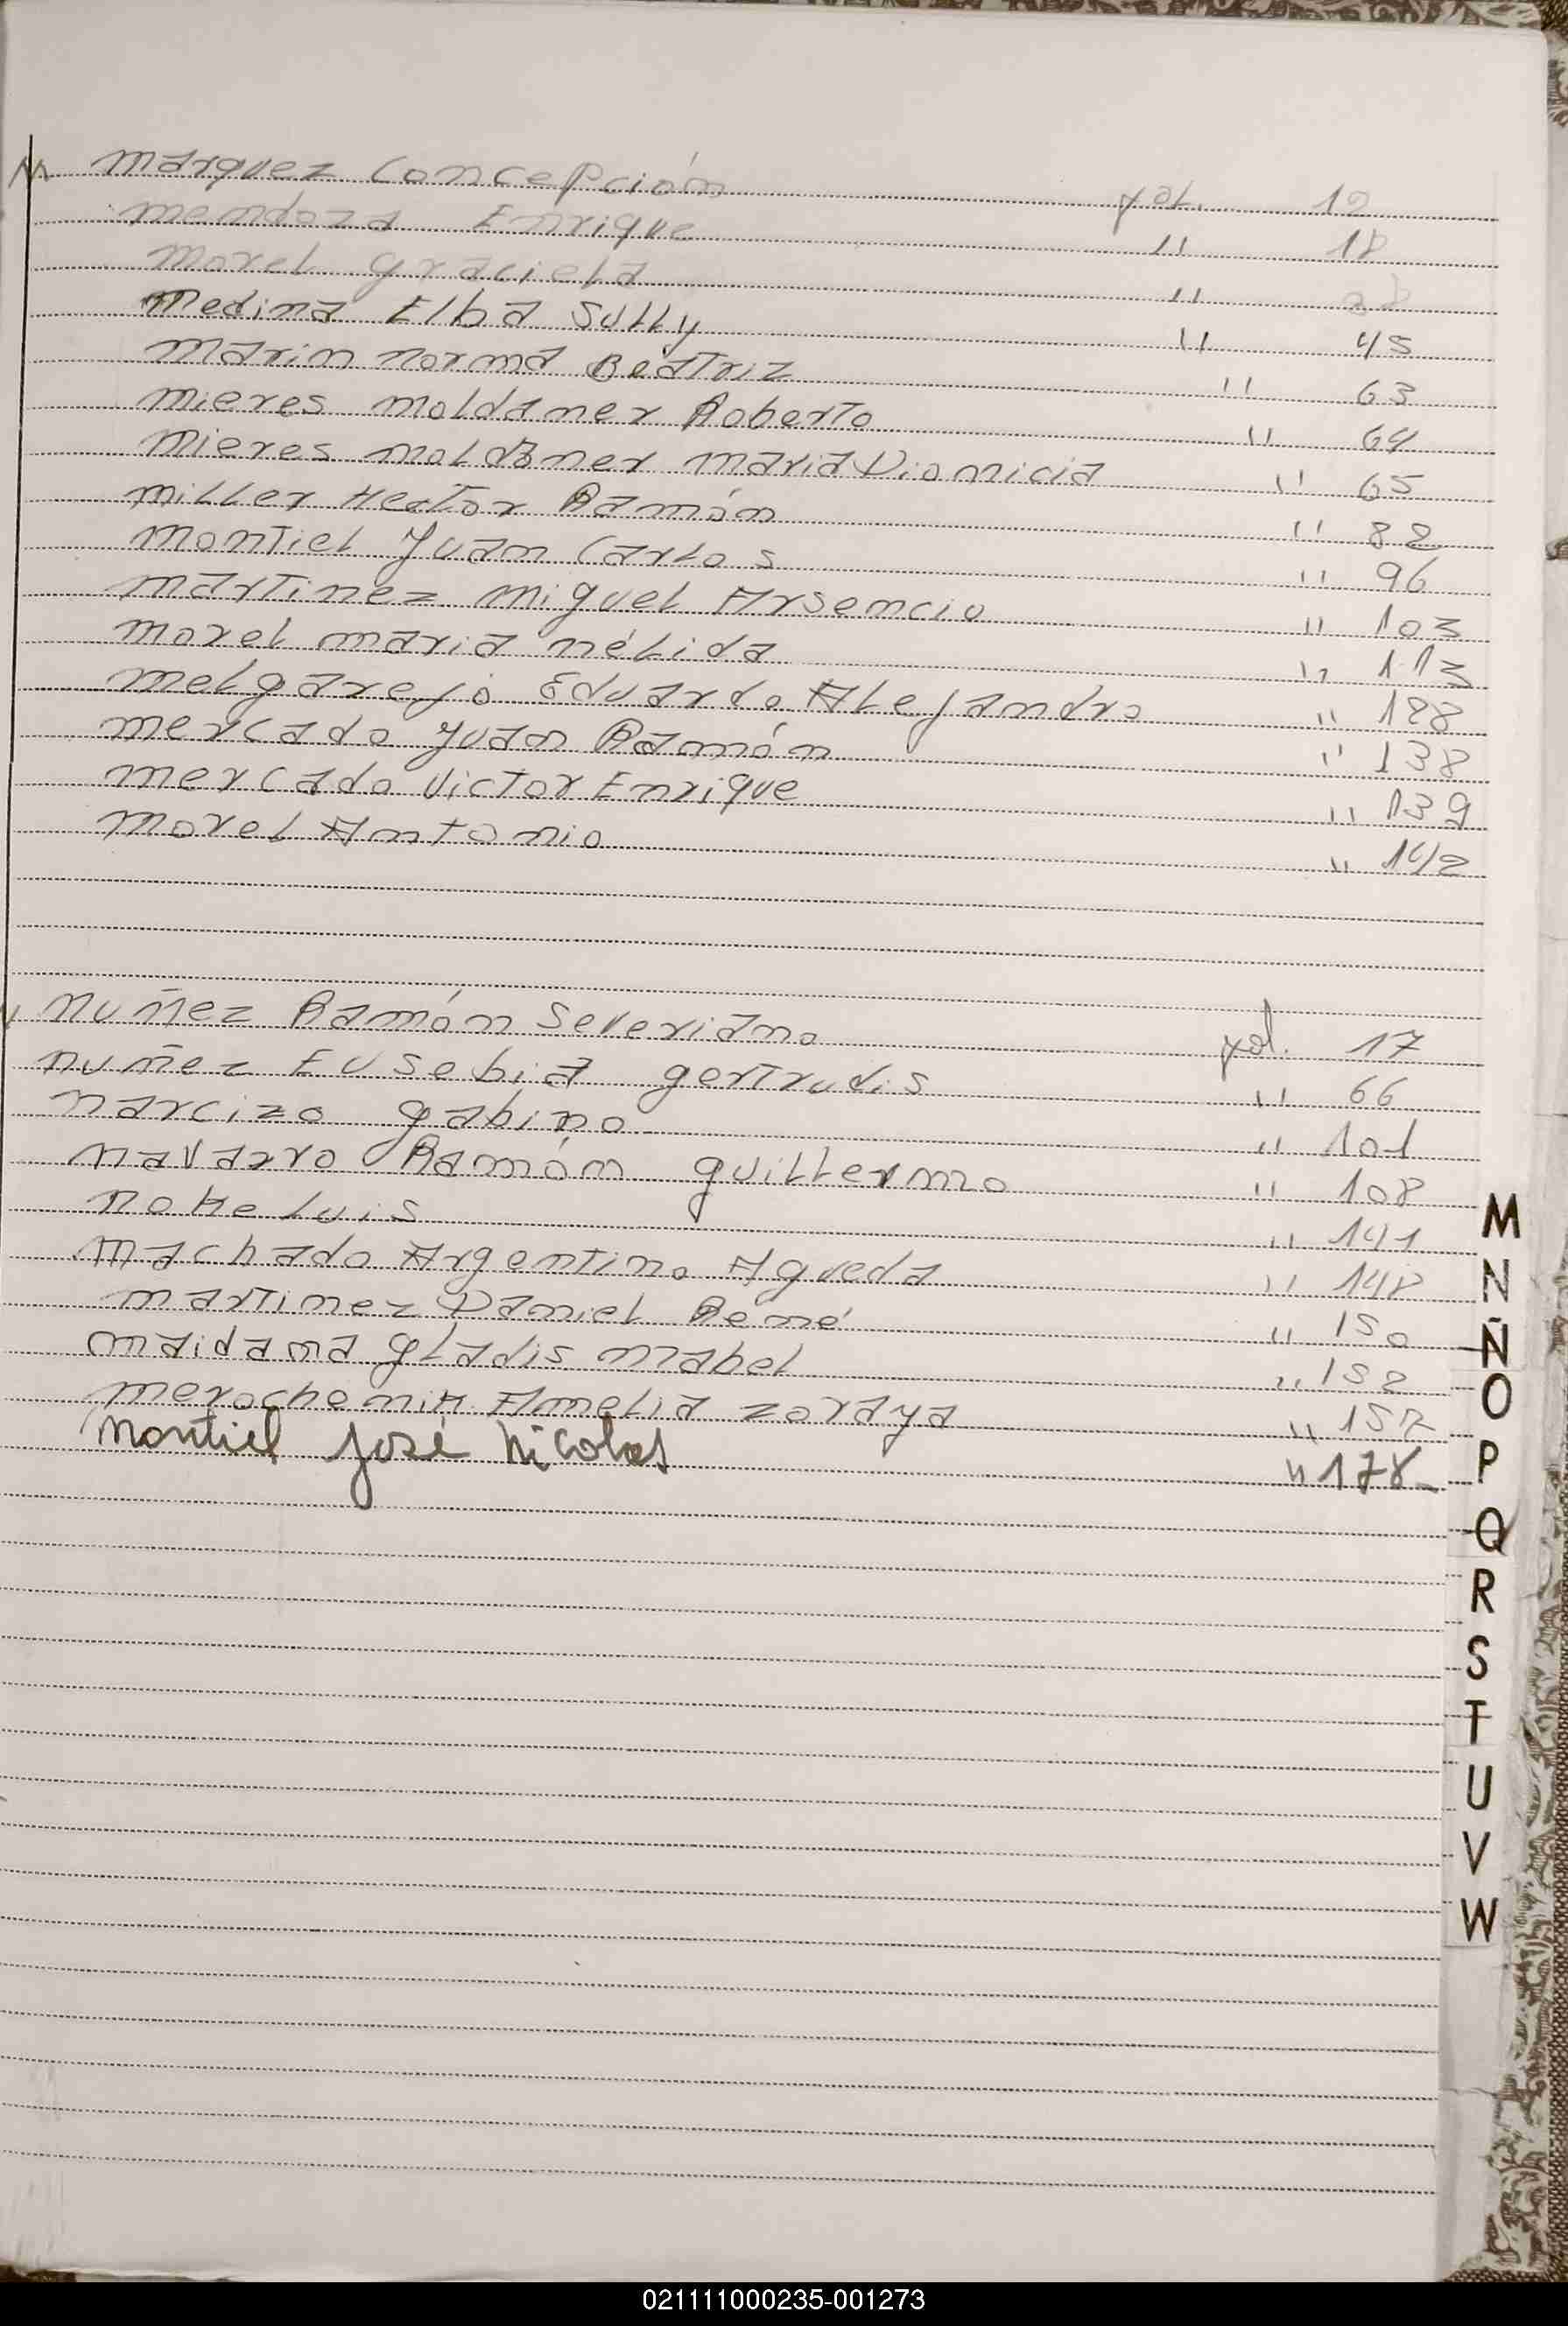 M Marquez Concepción fol. 12
Mendoza Enrique " 18
Morel Graciela "
Medina Elba Sully " 45
Marin Norma Beatriz " 63
Mieres Moldaner Roberto " 64
Mieres Moldaner Maria Dionicia " 65
Miller Hector Ramón " 82
Montiel Juan Carlos " 96
Martinez Miguel Arsencio " 103
Morel Maria Nélida " 113
Melgarejo Eduardo Alejandro " 128
Mercado Juan Ramón " 138
Mercado Victor Enrique " 139
Morel Antonio " 142
Nuñez Ramón Severiano fol. 17
Nuñez Eusebia Gertrudis " 66
Narcizo Gabino " 101
Navarro Ramón Guillermo " 108
Noke Luis " 141
Machado Argentino Agueda " 148
Martinez Daniel René " 150
Maidana Gladis Mabel " 152
Amelia Zoraya " 157
Montiel José Nicolas " 178
M
N
Ñ
O
P
Q
R
S
T
U
V
W
021111000235-001273